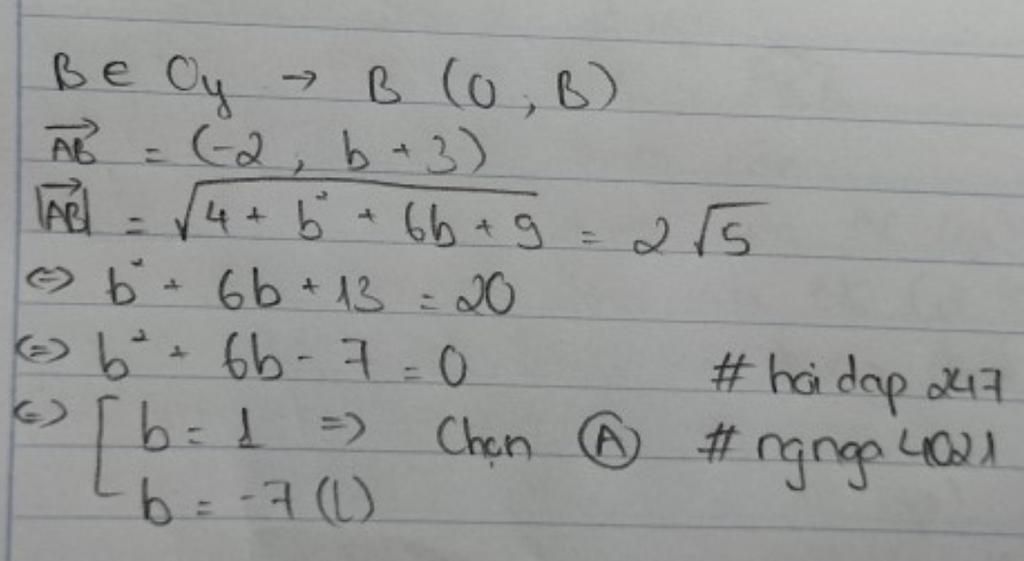 B ∈ Oy → B (0, B)
→AB = (-2, b + 3)
|→AB| = √(4 + b² + 6b + 9) = 2√5
⇔ b² + 6b + 13 = 20
⇔ b² + 6b - 7 = 0 # hoidap 247
⇔ [ b = 1 ⇒ Chọn Ⓐ # ngnga 4021
b = -7 (L)